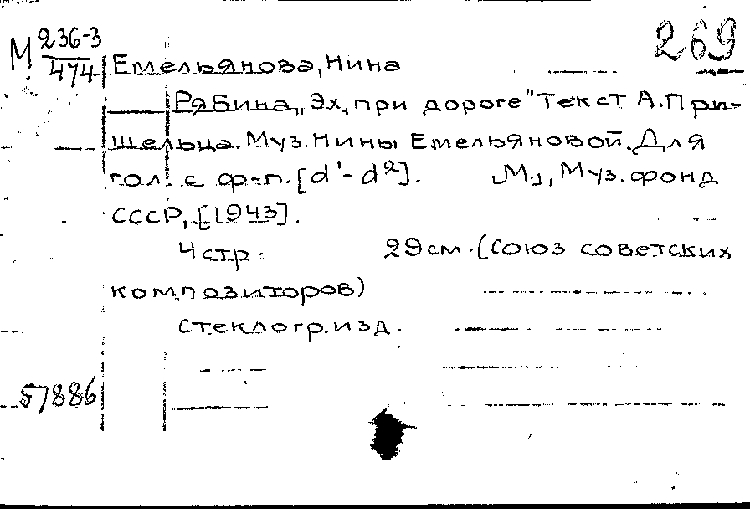 М 236-3
474
269
Емельянова, Нина
Рябина „Эх, при дороге" Текст А. При-
шельца. Муз. Нины Емельяновой. Для
гол. с ф-п. [d¹-d²]. М., Муз. фонд
СССР, [1943].
4 стр. 29 см. (Союз советских
композиторов)
стеклогр. изд.
57886